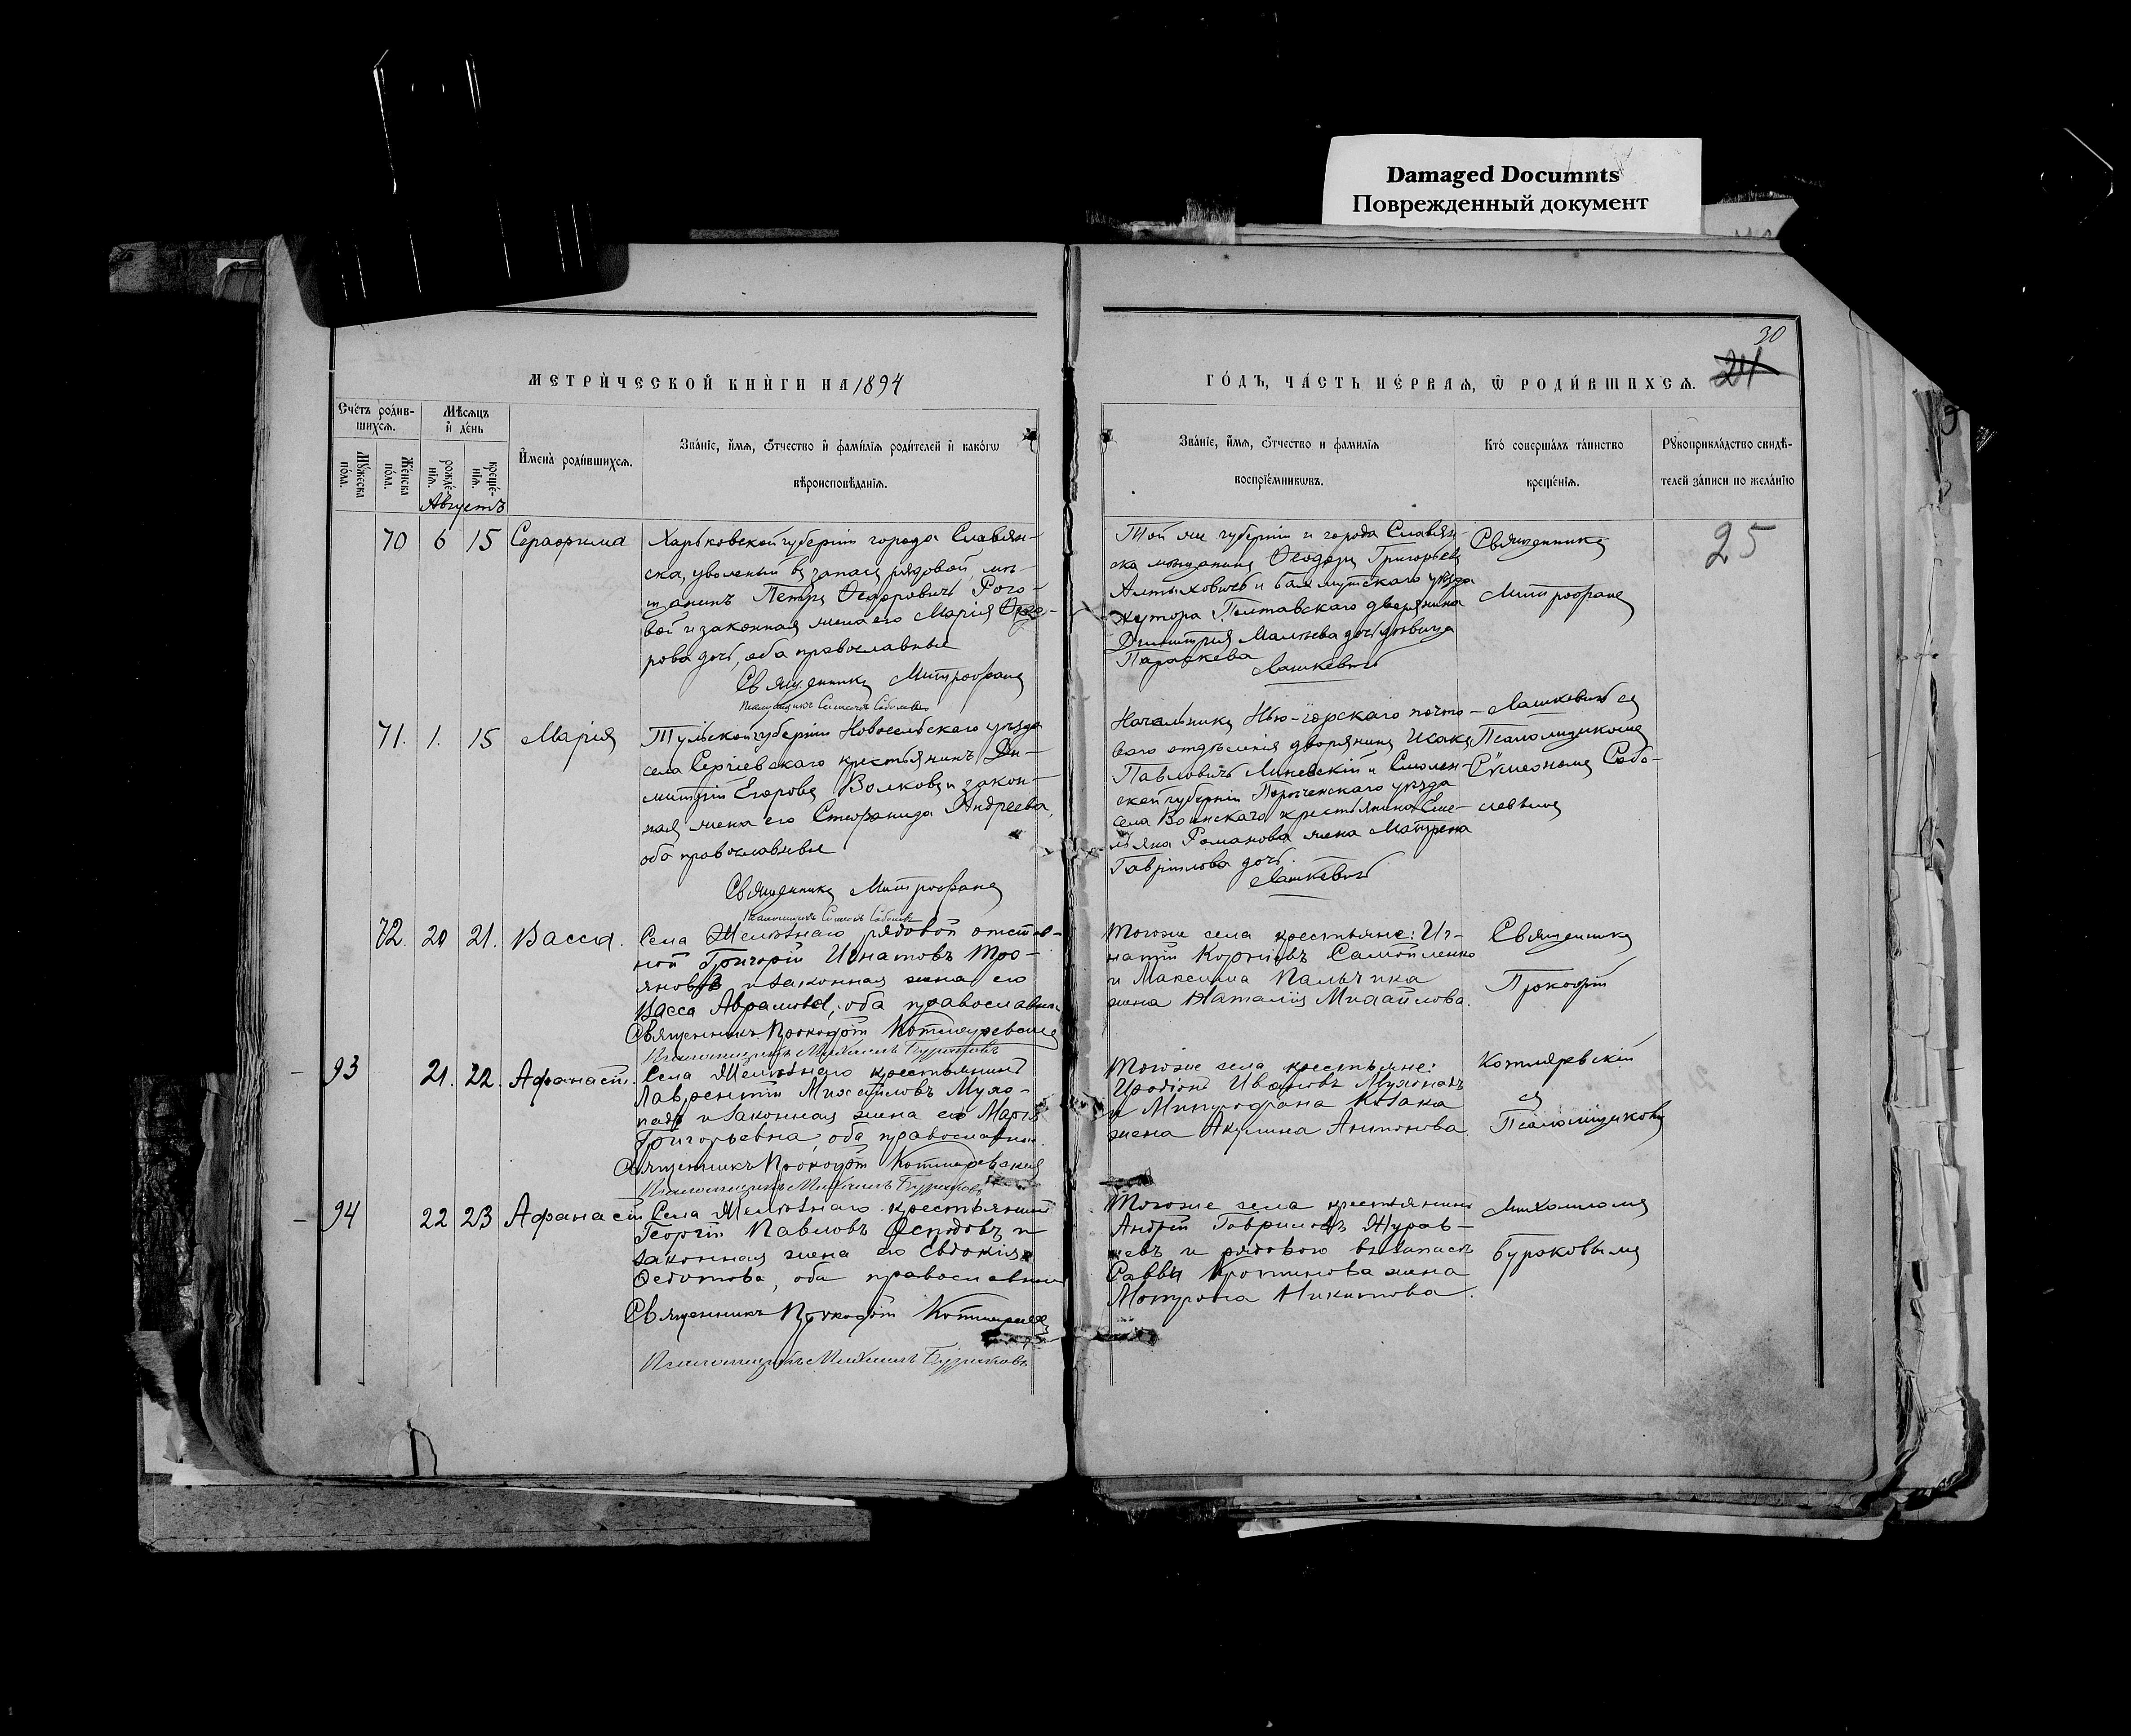 Damaged Documnts
Поврежденный документ
30
24
МЕТРИЧЕСКОЙ КНИГИ НА 1894
ГОДЪ, ЧАСТЬ ПЕРВАЯ, Ѿ РОДИВШИХСЯ.
Счетъ родив-
шихся.
Мѣсяцъ
и день
Мужеска
пола.
Женска
пола.
рожде-
нія.
креще-
нія.
Имена родившихся.
Званіе, имя, отчество и фамилія родителей и какогѡ
вѣроисповѣданія.
Званіе, имя, отчество и фамилія
воспріемникѡвъ.
Кто совершалъ таинство
крещенія.
Рукоприкладство свидѣ-
телей записи по желанію
Августъ
70 6 15 Серафима
Харьковской губерніи города Славян-
ска, уволеный въ запасъ рядовой, мѣ-
щанинъ Петръ Ѳедоровичъ Рого-
вой и законная жена его Марія Ѳедо-
рова дочь, оба православные
Священникъ Митрофанъ
Той же губерніи и города Славян-
ска мещанинъ Ѳеодоръ Григорьевъ
и Бахмутскаго уѣзда
хутора Полтавскаго дворянина
Димитрія
Параскева
Лашкевичъ
Священникъ
Митрофанъ
25
71. 1. 15 Марія
Тульской губерніи Новосельскаго уѣзда
села Сергіевскаго крестьянинъ Ди-
митрій Егоровъ Волковъ и закон-
ная жена его Стефанида Андреева,
оба православные
Священникъ Митрофанъ
Начальникъ Нью-іоркскаго почто-
ваго отдѣленія дворянинъ Исакъ
Павловичъ Линевскій и Смолен-
ской губерніи Порѣченскаго уѣзда
села Воинскаго крестьянина Еме-
льяна Романова жена Матрена
Гавріилова дочь.
Лашкевичъ
Лашкевичъ съ
Псаломщикомъ
Сѵмеономъ Собо-
левымъ
72. 20 21. Васса.
Села Желѣзнаго рядовой отстав-
ной Григорій Игнатовъ Тро-
яновъ и законная жена его
Васса Аврамова, оба православны
Священникъ Прокофій Котляревскій
Псаломщикъ Михаилъ Бураковъ
Тогоже села крестьяне: Иг-
натій Самойленко
и Максима Пальчика
жена Наталія Михайлова.
Священникъ
Прокофій
93 21. 22. Афанасій.
Села Желѣзнаго крестьянинъ
Лаврентій Михайловъ Мухо-
падъ и законная жена его Марія
Григорьевна оба православны.
Священникъ Прокофій Котляревскій
Псаломщикъ Михаилъ Бураковъ
Тогоже села крестьяне:
Иродіонъ Ивановъ Мухопадъ
и Митрофана Козака
жена Акулина Антонова.
Котляревскій
съ
Псаломщикомъ
94 22 23 Афанасій
Села Желѣзнаго крестьянинъ
Георгій Павловъ и
законная жена его Евдокія
Ѳедотова, оба православны
Священникъ Прокофій Котляревскій
Псаломщикъ Михаилъ Бураковъ
Тогоже села крестьянинъ
Андрей Гавриловъ Журав-
левъ и рядового въ запасѣ
Саввы жена
Матрона Никитова.
Михаиломъ
Бураковымъ